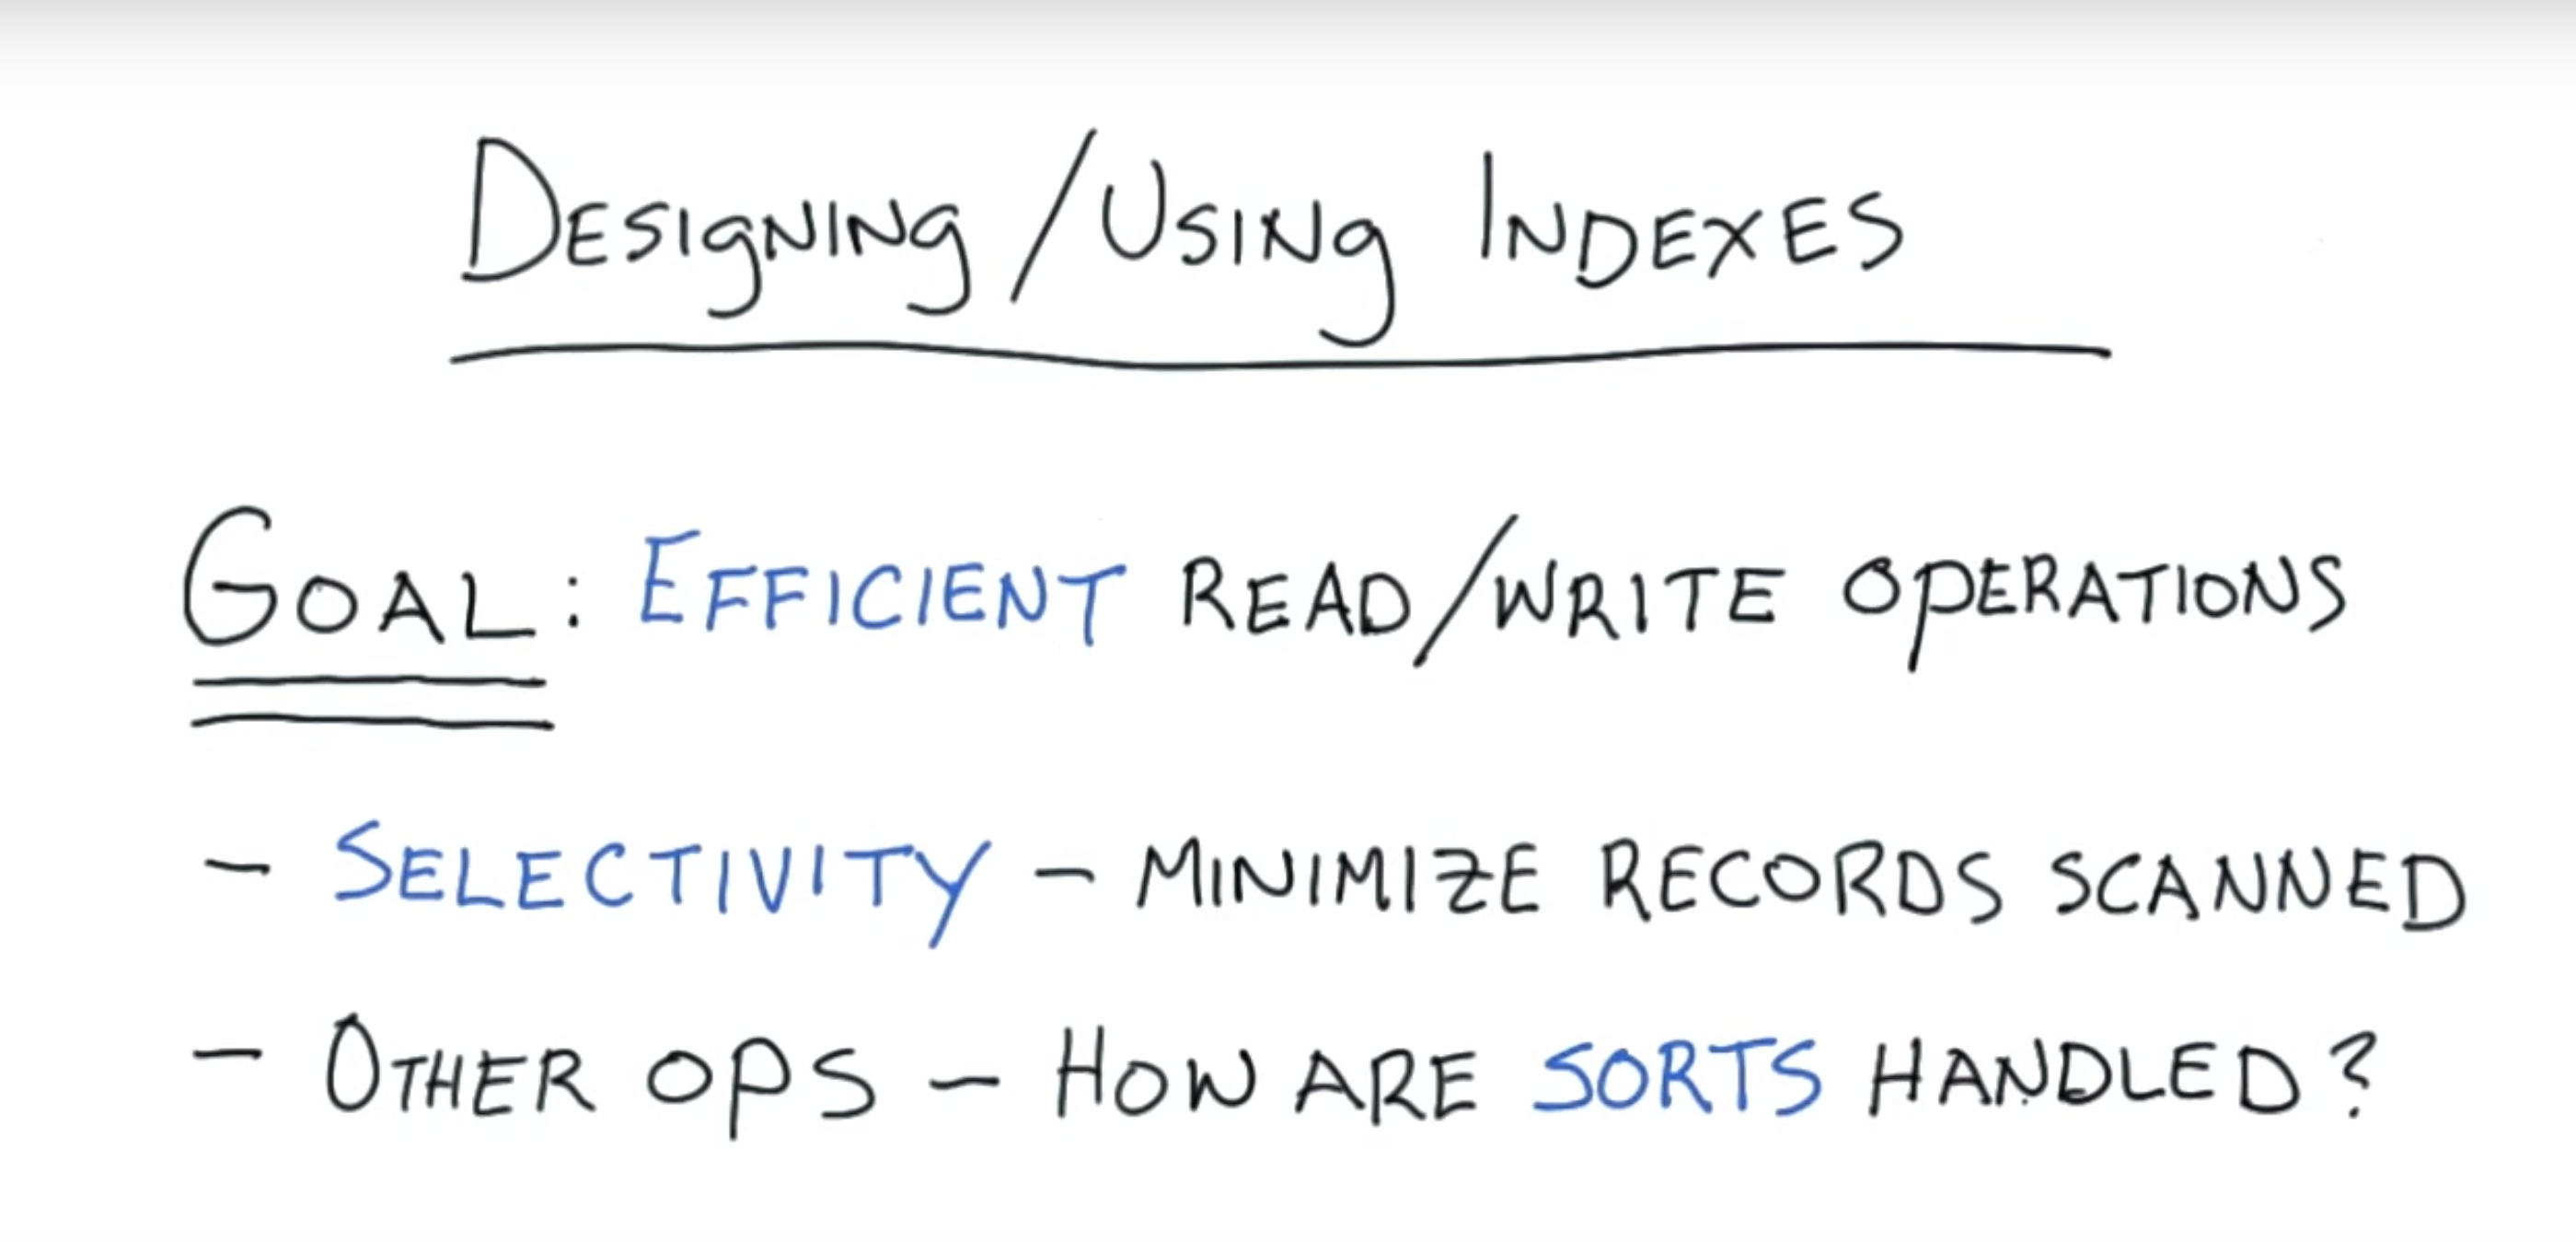 Designing/Using Indexes
Goal: Efficient read/write operations
- Selectivity - Minimize records scanned
- Other ops - How are sorts handled?